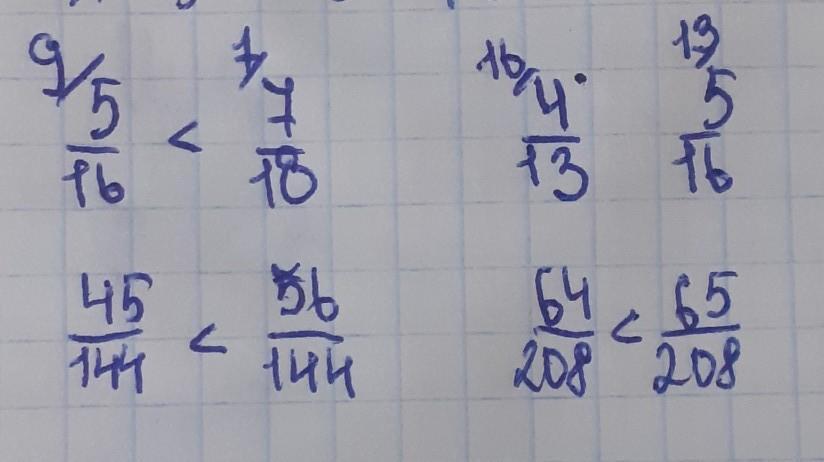 9/ 5/16 < 7/18   16/ 4/13   13/ 5/16
45/144 < 56/144   64/208 < 65/208